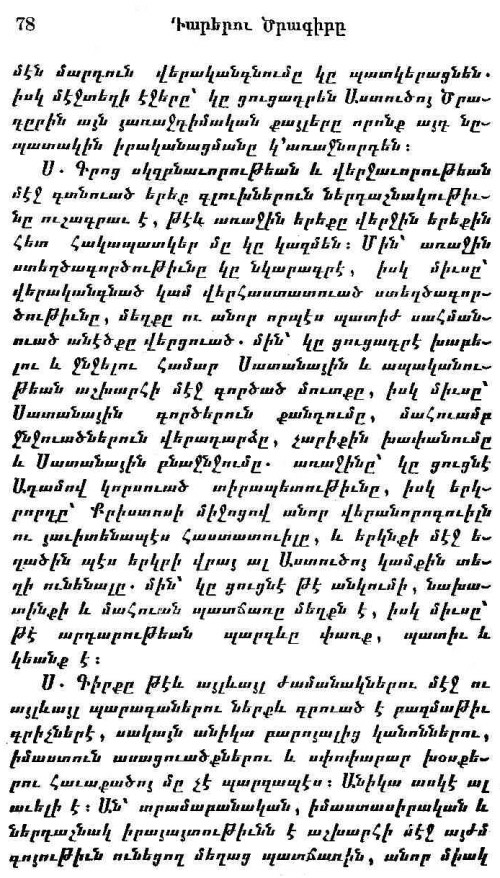 78
Դարերու Ծրագիրը
մէն մարդուն վերականգնումը կը պատկերացնեն.
իսկ մէջտեղի էջերը՝ կը ցուցադրեն Աստուծոյ Ծրա-
գըրին այն յառաջդիմական քայլերը որոնք այդ նը-
պատակին իրականացմանը կ՚առաջնորդեն։
Ս. Գրոց սկզրնաւորութեան և վերջաւորութեան
մէջ գտնուած երեք գլուխներուն ներդաշնակութիւ-
նը ուշագրաւ է, թէև առաջին երեքը վերջին երեքին
հետ հակապատկեր մը կը կազմեն։ Մին՝ առաջին
ստեղծագործութիւնը կը նկարագրէ, իսկ միւսը՝
վերականգնած կամ վերհաստատուած ստեղծագոր-
ծութիւնը, մեղքը ու անոր որպէս պատիժ սահման-
ուած անէծքը վերցուած. մին՝ կը ցուցադրէ խաբե-
լու և ջնջելու համար Սատանային և ապականու-
թեան աշխարհի մէջ գործած մուտքը, իսկ միւսը՝
Սատանային գործերուն քանդումը, մահուամբ
ջնջուածներուն վերադարձը, չարիքին խափանումը
և Սատանային բնաջնջումը. առաջինը՝ կը ցուցնէ
Ադամով կորսուած տիրապետութիւնը, իսկ երկ-
րորդը՝ Քրիստոսի միջոցով անոր վերանորոգուիլն
ու յաւիտենապէս հաստատուիլը, և երկնքի մէջ ե-
ղածին պէս երկրի վրայ ալ Աստուծոյ կամքին տե-
ղի ունենալը. մին՝ կը ցուցնէ թէ անկումի, նախա-
տինքի և մահուան պատճառը մեղքն է, իսկ միւսը՝
թէ արդարութեան պարգևը փառք, պատիւ և
կեանք է։
Ս. Գիրքը թէև այլևայլ ժամանակներու մէջ ու
այլևայլ պարագաներու ներքև գրուած է բազմաթիւ
գրիչներէ, սակայն անիկա բարոյալից կանոններու,
իմաստուն ասացուածքներու և սփոփարար խօսքե-
րու հաւաքածոյ մը չէ պարզապէս։ Անիկա ասկէ ալ
աւելի է։ Ան՝ տրամաբանական, իմաստասիրական և
ներդաշնակ իրայայտութիւնն է աշխարհի մէջ այժմ
գոյութիւն ունեցող մեղաց պատճառին, անոր միակ